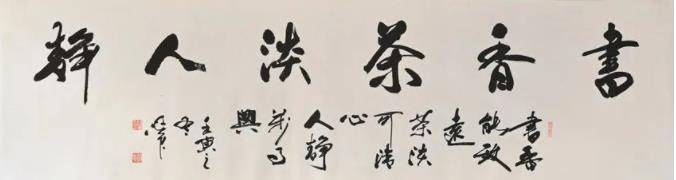 書香茶淡人靜
書香
能致
遠
茶淡
可清
心
人靜
萬事
興
壬寅之
冬